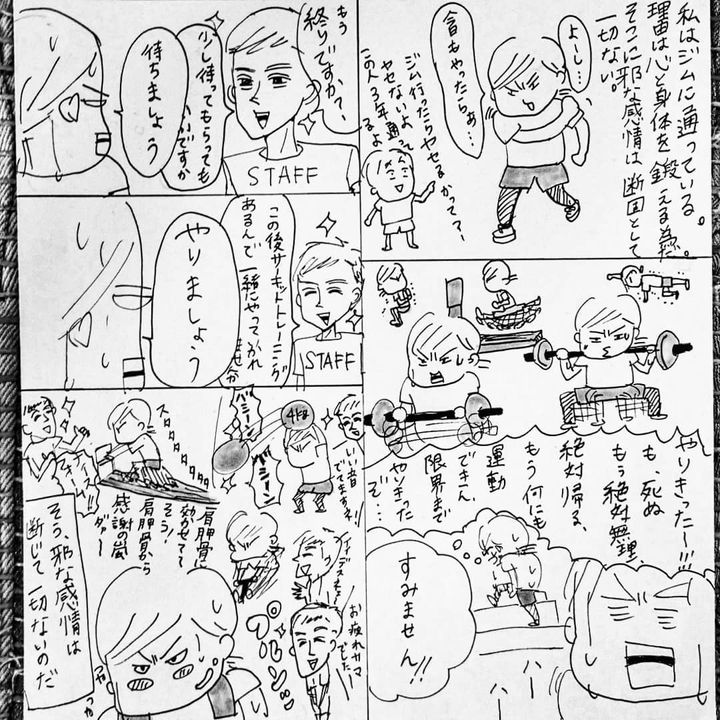 私はジムに通っている。
理由は心と身体を鍛える為だ。
そこに邪な感情は断固として
一切ない。
よーし…
今日もやったらぁ…
ジム行ったらヤセるかって?
ヤセないよ
この人3年通ってんだよ
やりきったー!!!
も、死ぬ
もう絶対無理、
絶対帰る、
もう何にも
運動
できん
限界まで
やりきった
ぞ…
すみません!!
もう
終りですか?
少し待ってもらっても
いいですか
待ちましょう
STAFF
この後サーキットトレーニング
あるんで一緒にやってかれ
ませんか
やりましょう
STAFF
スタタタタタタ
バシーン
ドシーン
4kg
いい音
でてますネ!
肩甲骨に
効かせてて
そう!
肩甲骨から
感謝の嵐
ダァー
ナイスです
お疲れサマ
でした
そう、邪な感情は
断じて一切ないのだ